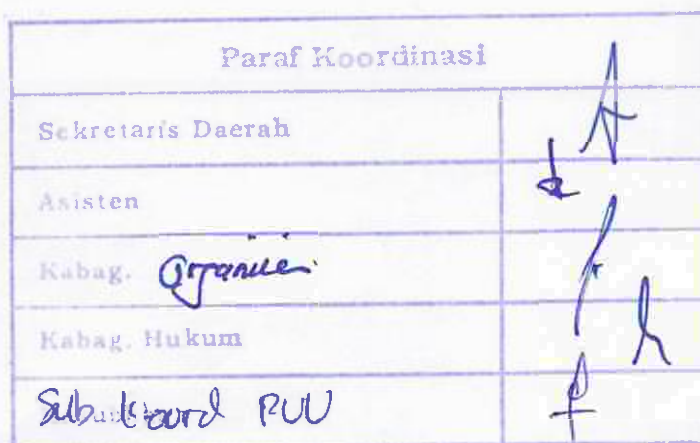 Paraf Koordinasi
Sekretaris Daerah
Asisten
Kabag. Organisasi
Kabag. Hukum
Sub Koord PUU